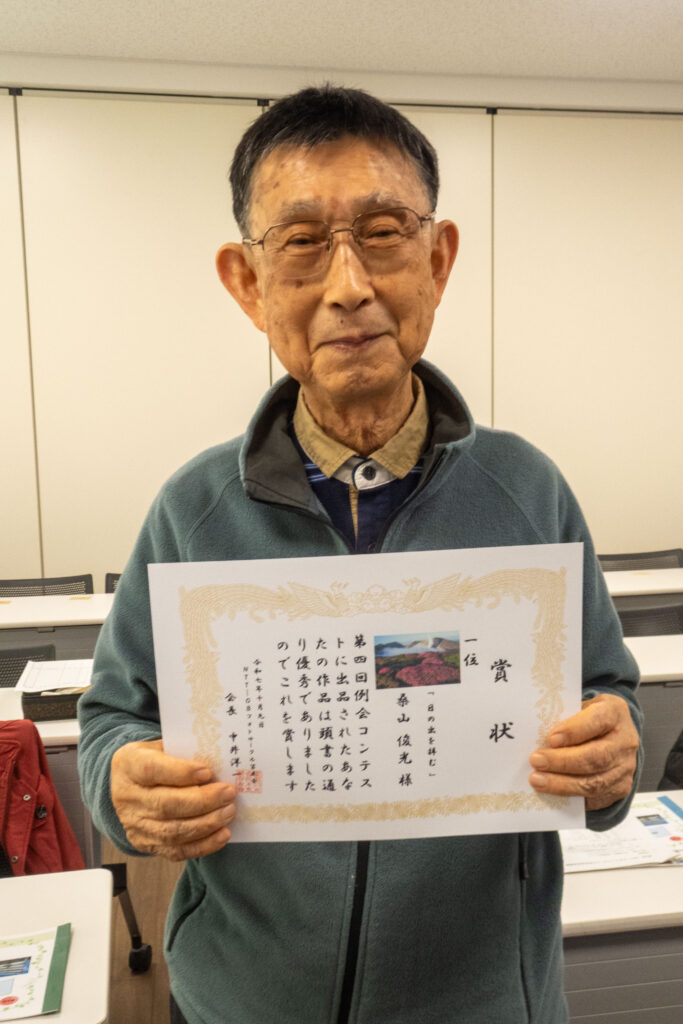 賞状
一位
「日の出を拝む」
桑山 俊光 様
第四回例会コンテス
トに出品されたあな
たの作品は頭書の通
り優秀でありました
のでこれを賞します
令和七年十月九日
会長 中井洋一